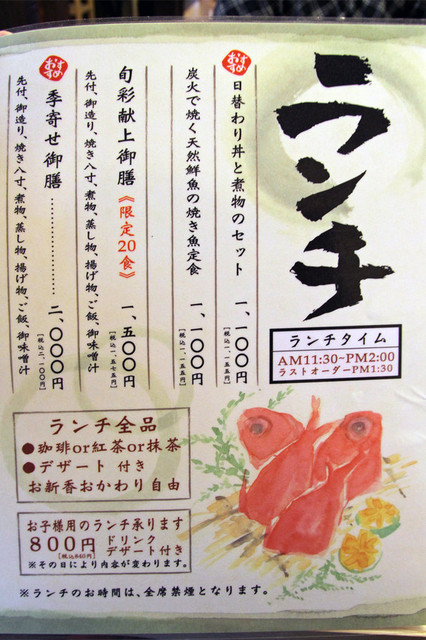 ランチ
ランチタイム
AM11:30~PM2:00
ラストオーダーPM1:30
おすすめ
日替わり丼と煮物のセット
一、一〇〇円
[税込一、一五五円]
炭火で焼く天然鮮魚の焼き魚定食
一、一〇〇円
[税込一、一五五円]
旬彩献上御膳《限定20食》
一、五〇〇円
[税込一、五七五円]
先付、御造り、焼き八寸、煮物、蒸し物、揚げ物、ご飯、御味噌汁
おすすめ
季寄せ御膳…………………
二、〇〇〇円
[税込二、一〇〇円]
先付、御造り、焼き八寸、煮物、蒸し物、揚げ物、ご飯、御味噌汁
ランチ全品
●珈琲or紅茶or抹茶
●デザート 付き
お新香おかわり自由
お子様用のランチ承ります
800円 ドリンク
[税込840円] デザート付き
※その日により内容が変わります。
※ランチのお時間は、全席禁煙となります。